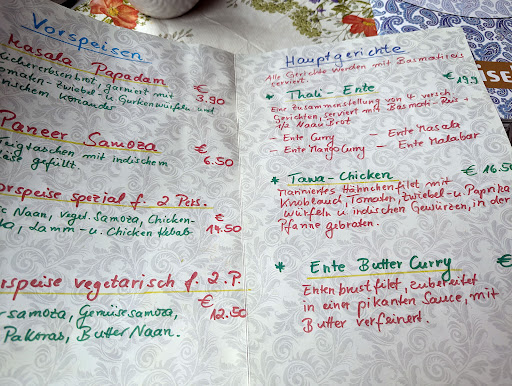 Vorspeisen
Masala Papadam
Kichererbsenbrot, garniert mit
Tomaten-, Zwiebel- u. Gurkenwürfeln und
indischem Koriander
€
3.90
Paneer Samoza
Teigtaschen mit indischem
Käse gefüllt.
€
6.50
Vorspeise spezial f. 2 Pers.
Naan, Veget. Samoza, Chicken-
Lamm- u. Chicken Kebab
€
14.50
Vorspeise vegetarisch f. 2 P.
samoza, Gemüsesamoza,
Pakoras, Butter Naan.
€
12.50
Hauptgerichte
Alle Gerichte werden mit Basmatireis
serviert.
* Thali - Ente
€ 19,9
Eine Zusammenstellung von 4 versch.
Gerichten, serviert mit Basmati-Reis +
1/2 Naan Brot
- Ente Curry - Ente Masala
- Ente Mango Curry - Ente Malabar
* Tawa-Chicken
€ 16.50
Mariniertes Hähnchenfilet mit
Knoblauch, Tomaten, Zwiebel- u. Paprika
würfeln u. indischen Gewürzen, in der
Pfanne gebraten.
* Ente Butter Curry
€
Entenbrustfilet, zubereitet
in einer pikanten Sauce, mit
Butter verfeinert.
ISE